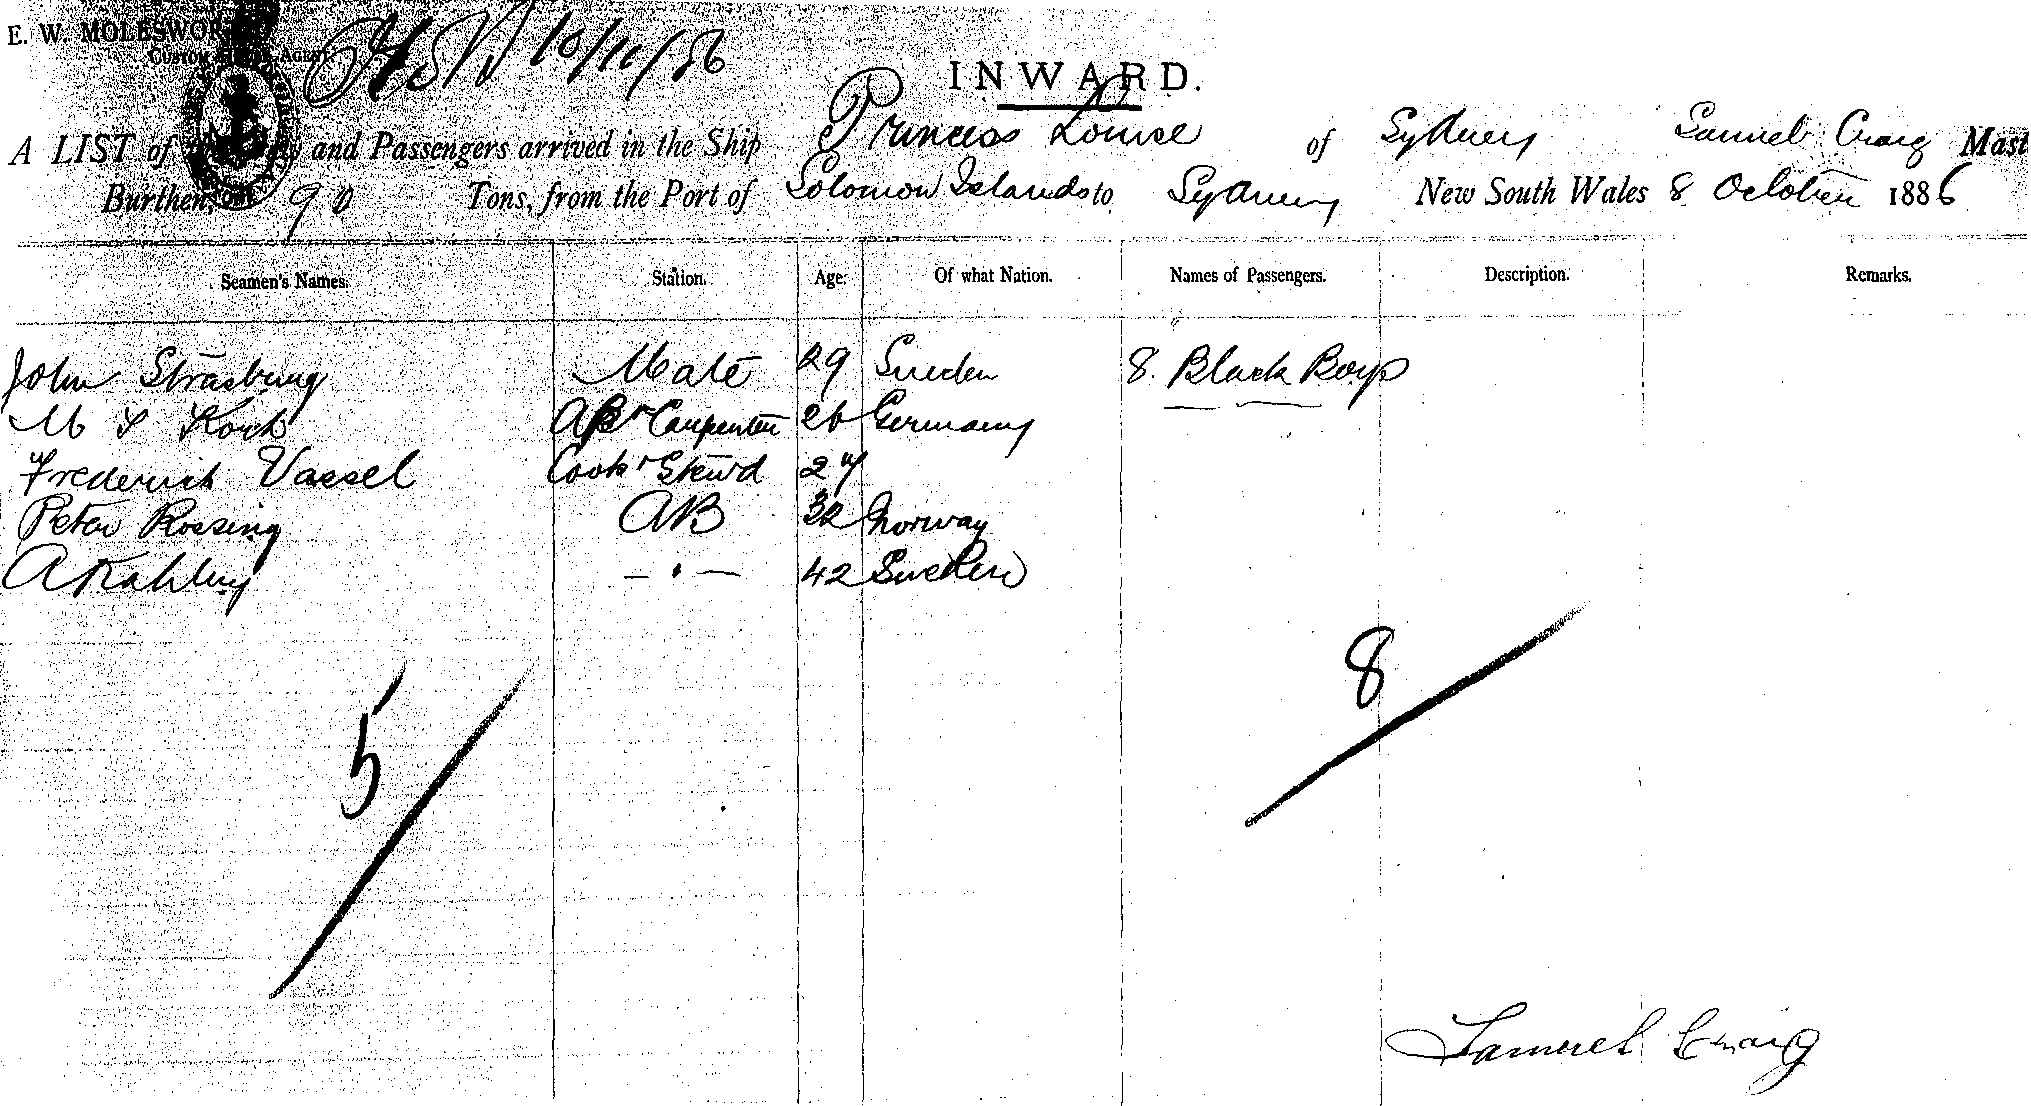 E. W. MOLESWOR
Custom Agent
10/11/86
INWARD.
A LIST of and Passengers arrived in the Ship Princess Louise of Sydney Samuel Craig Mast
Burthen, 90 Tons, from the Port of Solomon Islands to Sydney New South Wales 8 October 1886
Seamen's Names. Station. Age. Of what Nation. Names of Passengers. Description. Remarks.
John Strasburg Mate 29 Sweden 8. Black Boys
Koch AB & Carpenter 26 Germany
Frederick Vassel Cook & Stewd 27 "
Peter Rossing AB 32 Norway
A Kahlung — " — 42 Sweden
8
5
Samuel Craig